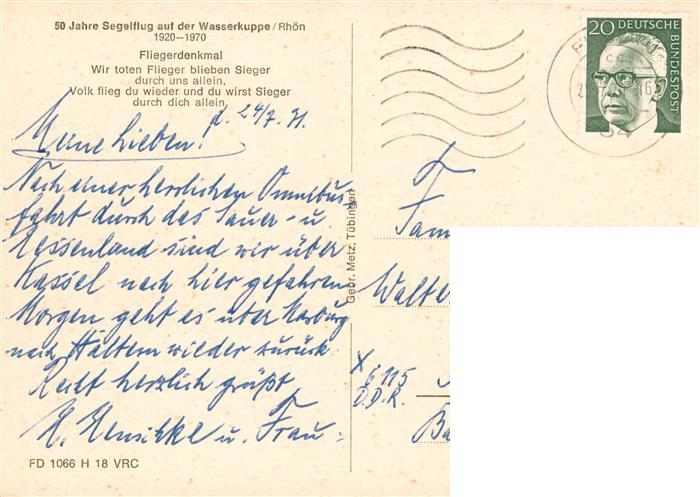 50 Jahre Segelflug auf der Wasserkuppe/Rhön
1920–1970
Fliegerdenkmal
Wir toten Flieger blieben Sieger
durch uns allein,
Volk flieg du wieder und du wirst Sieger
durch dich allein.
d. 24/7. 71.
Meine Lieben!
Nach einer herrlichen Omnibus-
fahrt durch das Sauer- u.
Hessenland sind wir über
Kassel nach hier gefahren
Morgen geht es über Marburg
nach Haltern wieder zurück.
Recht herzlich grüßt
H. Henschke u. Frau
FD 1066 H 18 VRC
Gebr. Metz, Tübingen
20 DEUTSCHE
BUNDESPOST
Fam
Walte
x 6115
D.D.R.
Ba